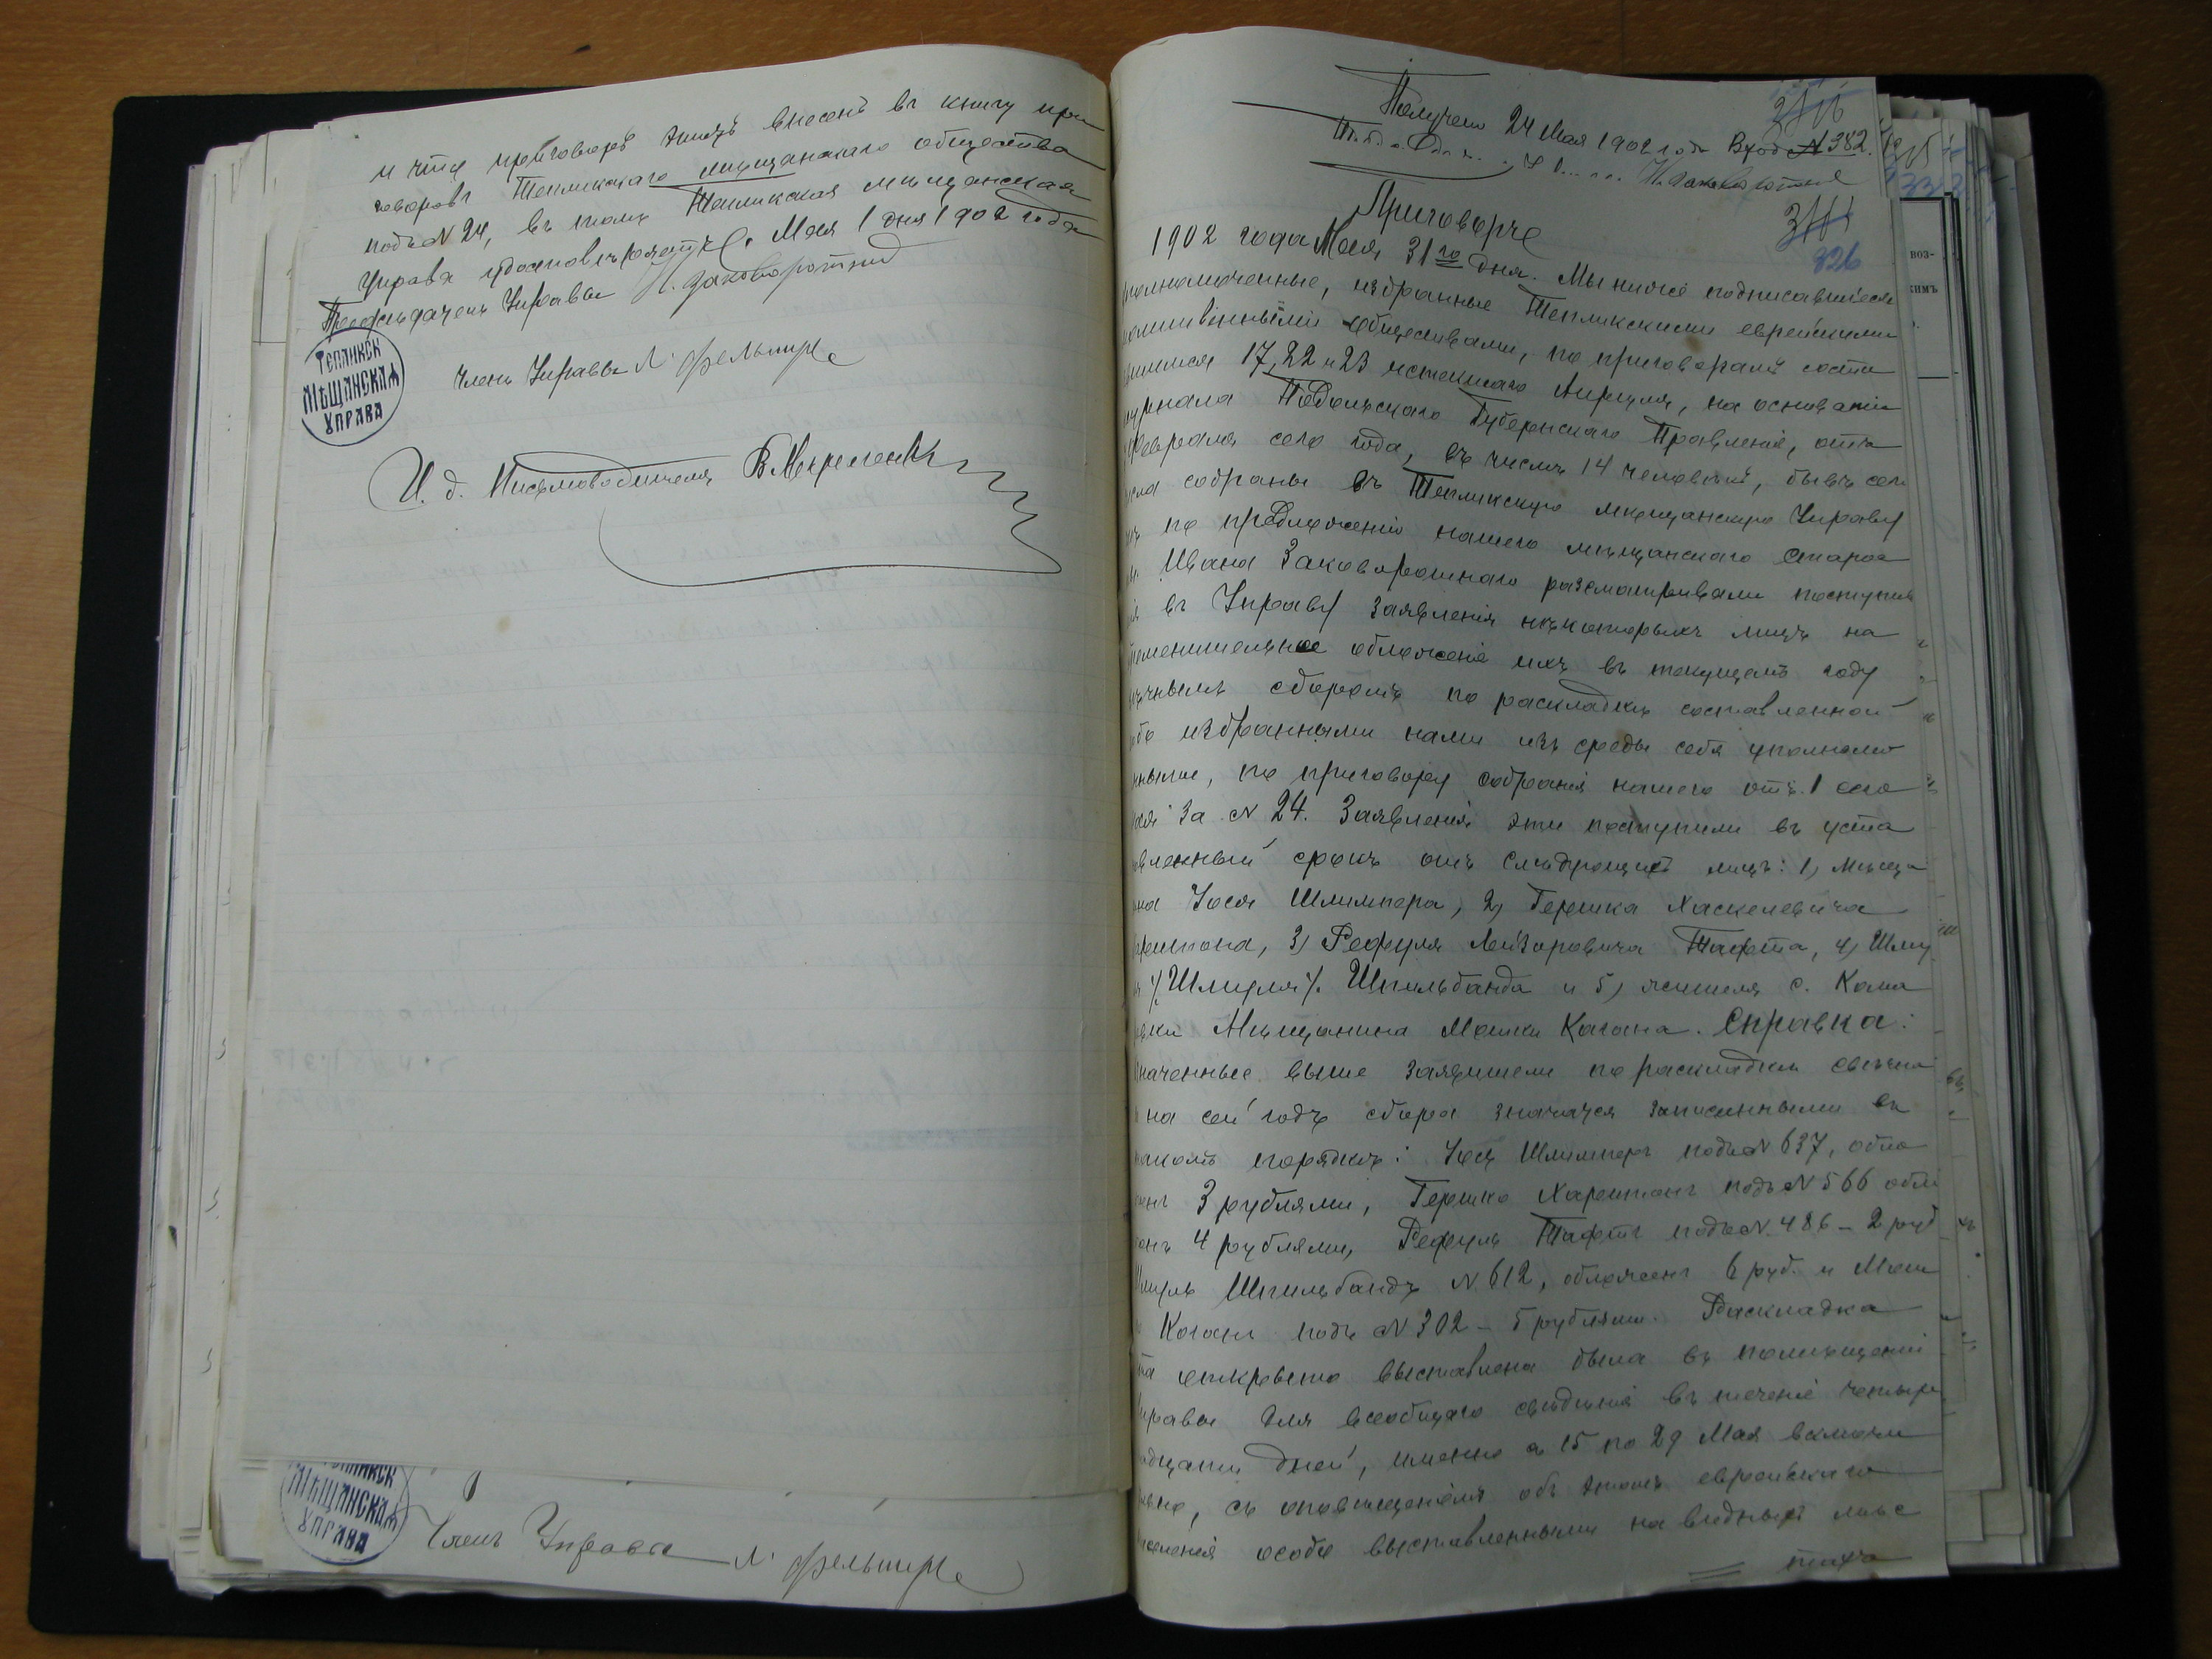 и что приговоръ этотъ внесенъ въ книгу при
говоровъ Тепликскаго мѣщанскаго общества
подъ № 24, въ томъ Тепликская мѣщанская
Управа удостовѣряетъ. Мая 1 дня 1902 года
Предсѣдатель Управы И. Заковоротный
ТЕПЛИКСК
МѢЩАНСКАЯ
УПРАВА
Членъ Управы
И. д. Письмоводителя
ТЕПЛИКСК
МѢЩАНСКАЯ
УПРАВА
Членъ Управы
Получено 24 Мая 1902 года Вход № 382.
Приговоръ
826
1902 года Мая 31го дня. Мы ниже подписавшіеся
полномоченные, избранные Тепликскими еврейскими
обществами, по приговорамъ состо
17, 22 и 23 истекшаго Апрѣля, на основаніи
журнала Подольскаго Губернскаго Правленія, отъ
Февраля сего года, въ числѣ 14 человѣкъ, бывъ сего
числа собраны въ Тепликскую мѣщанскую Управу
по предложенію нашего мѣщанскаго Старос
ты Ивана Заковоротнаго разсматривали поступив
въ Управу заявленія нѣкоторыхъ лицъ на
обложеніе ихъ въ текущемъ году
свѣчнымъ сборомъ по раскладкѣ составленной
особо избранными нами изъ среды себя уполномо
ченными, по приговору собранія нашего отъ 1 сего
Мая за № 24. Заявленія эти поступили въ уста
новленный срокъ отъ слѣдующихъ лицъ: 1) Мѣща
нина Іося Шлимпера, 2) Гершка Хаскелевича
3) Рефуля Лейзоровича Тафта, 4) Шму
ля /Шмуля/ Шпильбанда и 5) жителя с. Кама
мѣщанина Мошки Когана. Справка:
означенные выше заявители по раскладкѣ свѣчна
го на сей годъ сбора значатся записанными въ
такомъ порядкѣ: Іось Шлимперъ подъ № 637, обло
женъ 3 рублями, Гершко подъ № 566 обло
женъ 4 рублями, Рефуль Тафтъ подъ № 486 – 2 руб
Шмуль Шпильбандъ № 612, обложенъ 6 руб. и Мош
ко Коганъ подъ № 302 – 5 рублями. Раскладка
эта открыто выставлена была въ помѣщеніи
Управы для всеобщаго свѣдѣнія въ теченіе четыр
надцати дней, именно съ 15 по 29 Мая включи
тельно, съ оповѣщеніемъ объ этомъ еврейскаго
населенія особо выставленными на видныхъ мѣс
тахъ